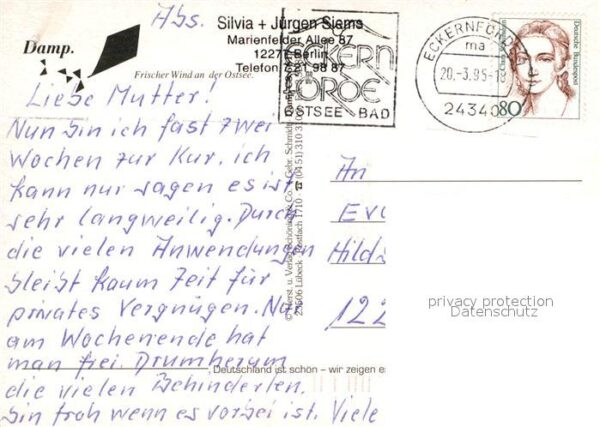 Abs.
Silvia + Jürgen Siems
Marienfelder Allee 87
12277 Berlin
Telefon 7 21 98 87
Damp.
Frischer Wind an der Ostsee.
ECKERN
FÖRDE
OSTSEE - BAD
ECKERNFÖRDE
ma
20.-3.95-18
24340
Deutsche Bundespost
80
Liebe Mutter!
Nun bin ich fast zwei
Wochen zur Kur, ich
kann nur sagen es ist
sehr langweilig. Durch
die vielen Anwendungen
bleibt kaum Zeit für
privates Vergnügen. Nur
am Wochenende hat
man frei. Drumherum
die vielen Behinderten.
Bin froh wenn es vorbei ist. Viele
Deutschland ist schön – wir zeigen es
23506 Lübeck · Postfach 1710 · ☎ (04 51)
An
Hild
122
privacy protection
Datenschutz